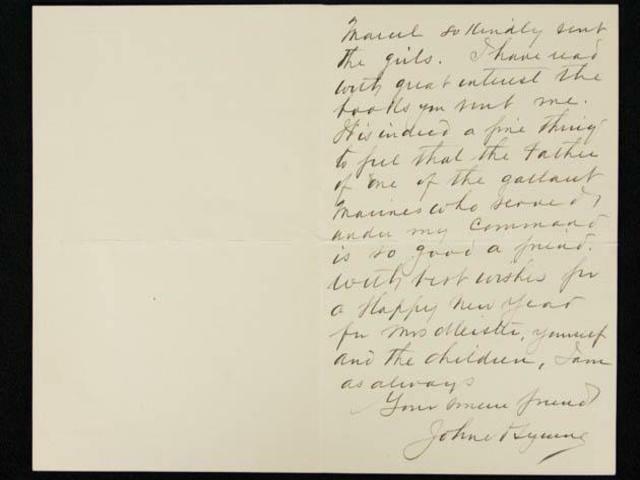 Marcel so kindly sent
the girls. I have read
with great interest the
books you sent me.
It is indeed a fine thing
to feel that the Father
of one of the gallant
Marines who served
under my command
is so good a friend.
With best wishes for
a Happy New Year
for Mrs Meister, yourself
and the children, I am
as always
Your sincere friend